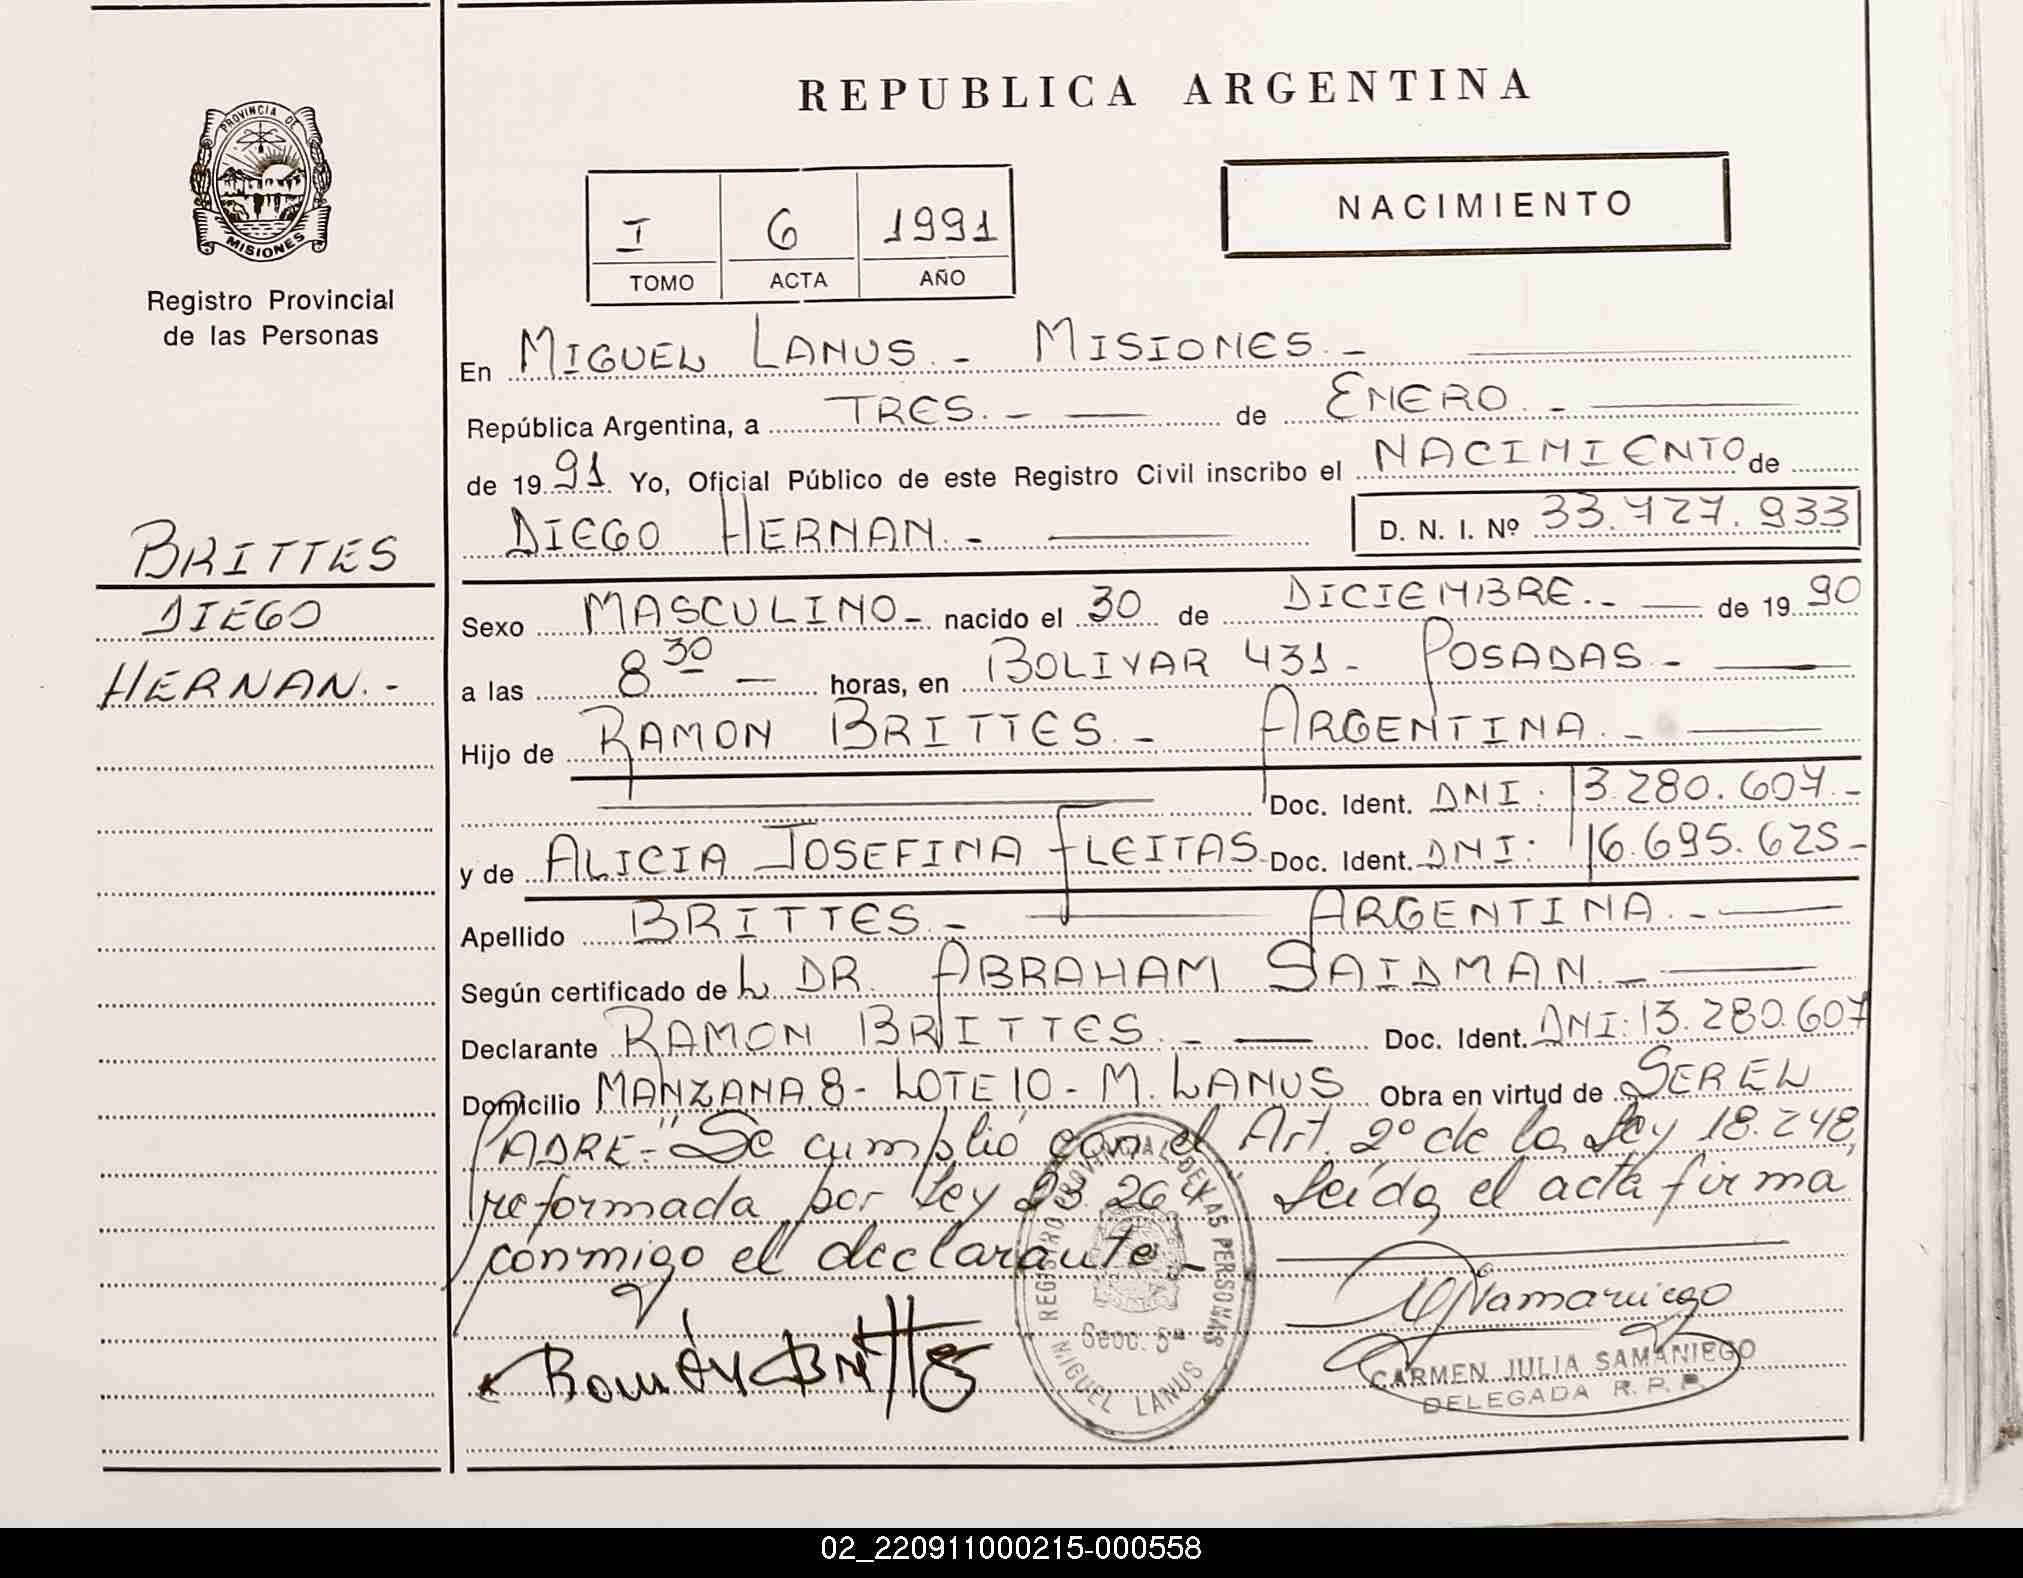 PROVINCIA DE
MISIONES
Registro Provincial
de las Personas
BRITTES
DIEGO
HERNAN.-
REPUBLICA ARGENTINA
I 6 1991
TOMO ACTA AÑO
NACIMIENTO
En MIGUEL LANUS.- MISIONES.-
República Argentina, a TRES.- de ENERO.-
de 1991 Yo, Oficial Público de este Registro Civil inscribo el NACIMIENTO de
DIEGO HERNAN.- D. N. I. Nº 33.727.933
Sexo MASCULINO- nacido el 30 de DICIEMBRE.- de 1990
a las 8 30 — horas, en BOLIVAR 431- POSADAS.-
Hijo de RAMON BRITTES.- ARGENTINA.-
Doc. Ident. DNI: 13.280.607.-
y de ALICIA JOSEFINA FLEITAS- Doc. Ident. DNI: 16.695.625-
Apellido BRITTES.- ARGENTINA.-
Según certificado de L DR. ABRAHAM SAIDMAN.-
Declarante RAMON BRITTES.- Doc. Ident. DNI: 13.280.607
Domicilio MANZANA 8- LOTE 10- M. LANUS Obra en virtud de SER EL
PADRE-"Se cumplió con el Art. 2º de la Ley 18.248,
reformada por Ley 23.26 Leída el acta firma
conmigo el declarante.-
Ramón Brittes
REGISTRO PROVINCIAL DE LAS PERSONAS
Secc. 5ª
MIGUEL LANUS
CJSamaniego
CARMEN JULIA SAMANIEGO
DELEGADA R. P. P.
02_220911000215-000558